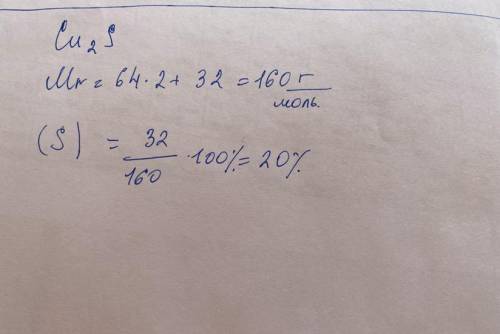 Cu₂S
Mr = 64·2 + 32 = 160 г/моль.
(S) = 32/160 · 100% = 20%